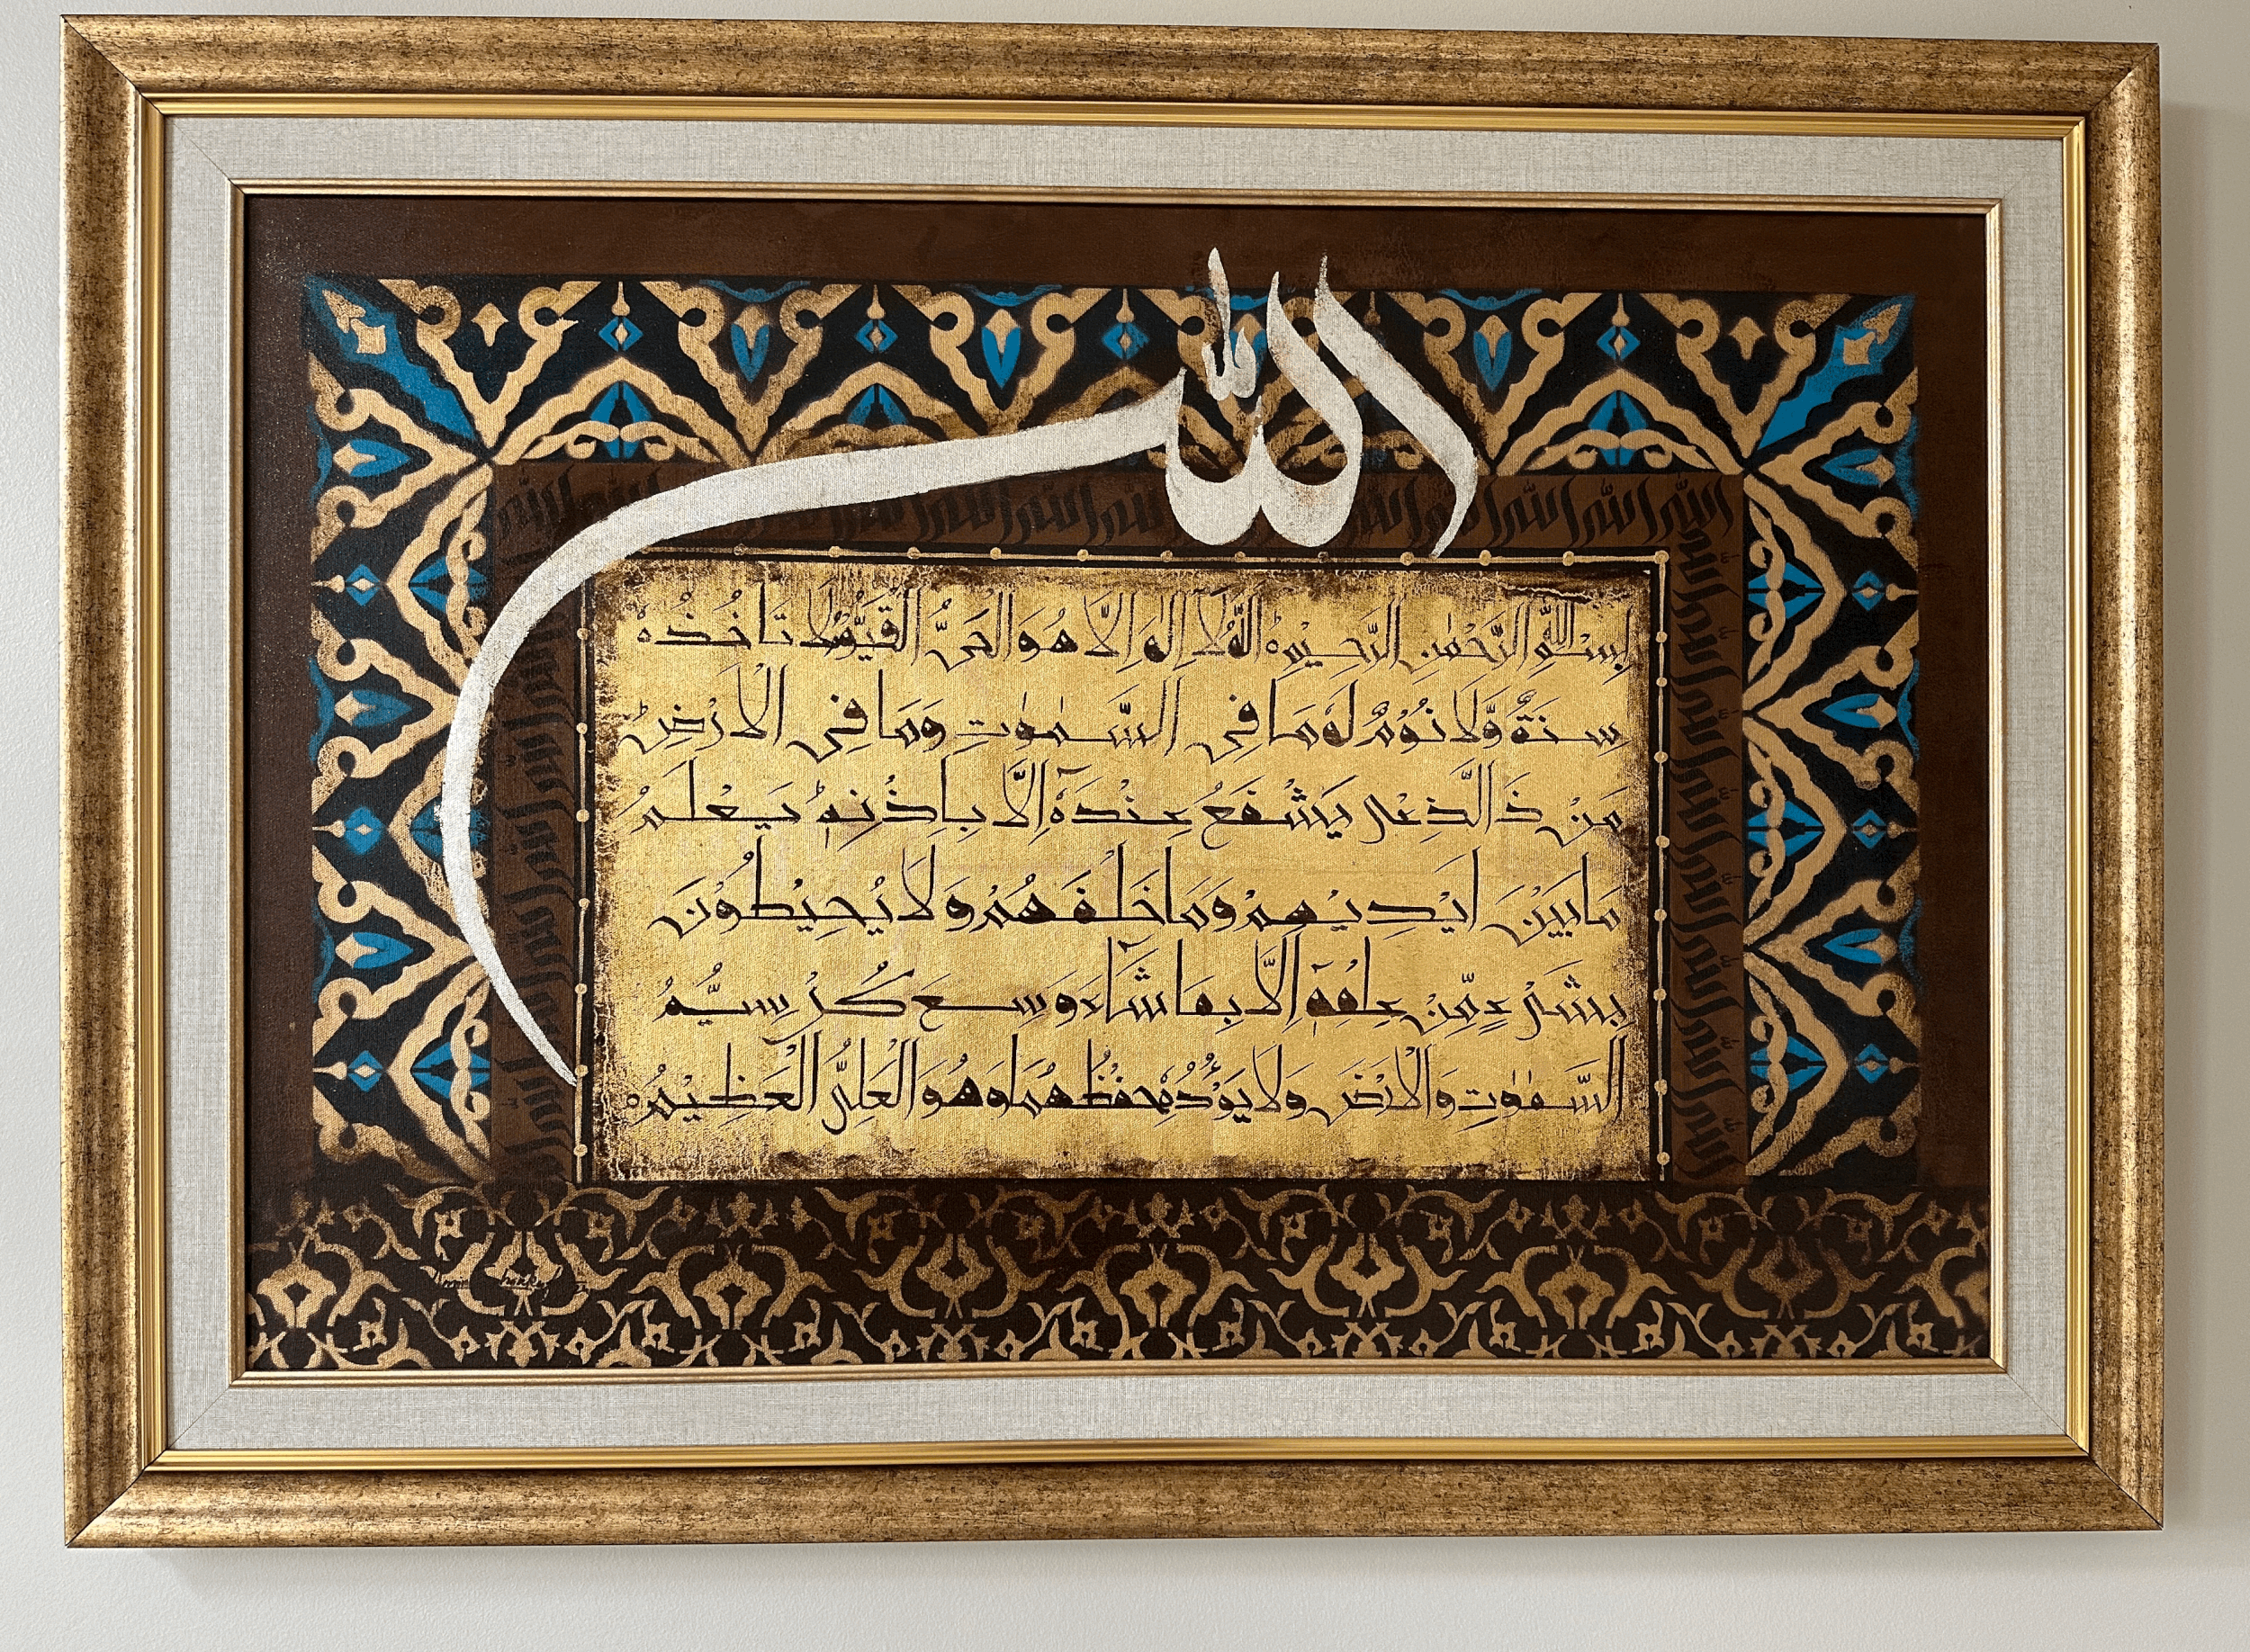 الله
بِسْمِ اللّٰهِ الرَّحْمٰنِ الرَّحِيْمِ اَللّٰهُ لَا اِلٰهَ اِلَّا هُوَ الْحَىُّ الْقَيُّوْمُ لَا تَاْخُذُهٗ
سِنَةٌ وَّلَا نَوْمٌ لَهٗ مَا فِى السَّمٰوٰتِ وَمَا فِى الْاَرْضِ
مَنْ ذَا الَّذِىْ يَشْفَعُ عِنْدَهٗٓ اِلَّا بِاِذْنِهٖ يَعْلَمُ
مَا بَيْنَ اَيْدِيْهِمْ وَمَا خَلْفَهُمْ وَلَا يُحِيْطُوْنَ
بِشَىْءٍ مِّنْ عِلْمِهٖٓ اِلَّا بِمَا شَآءَ وَسِعَ كُرْسِيُّهُ
السَّمٰوٰتِ وَالْاَرْضَ وَلَا يَـُٔوْدُهٗ حِفْظُهُمَا وَهُوَ الْعَلِىُّ الْعَظِيْمُ